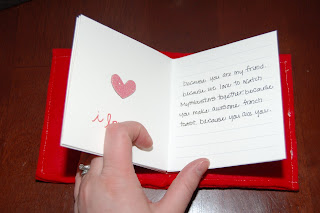 i
because you are my friend.
because we love to watch
together. because
you make awesome french
toast. because you are you.